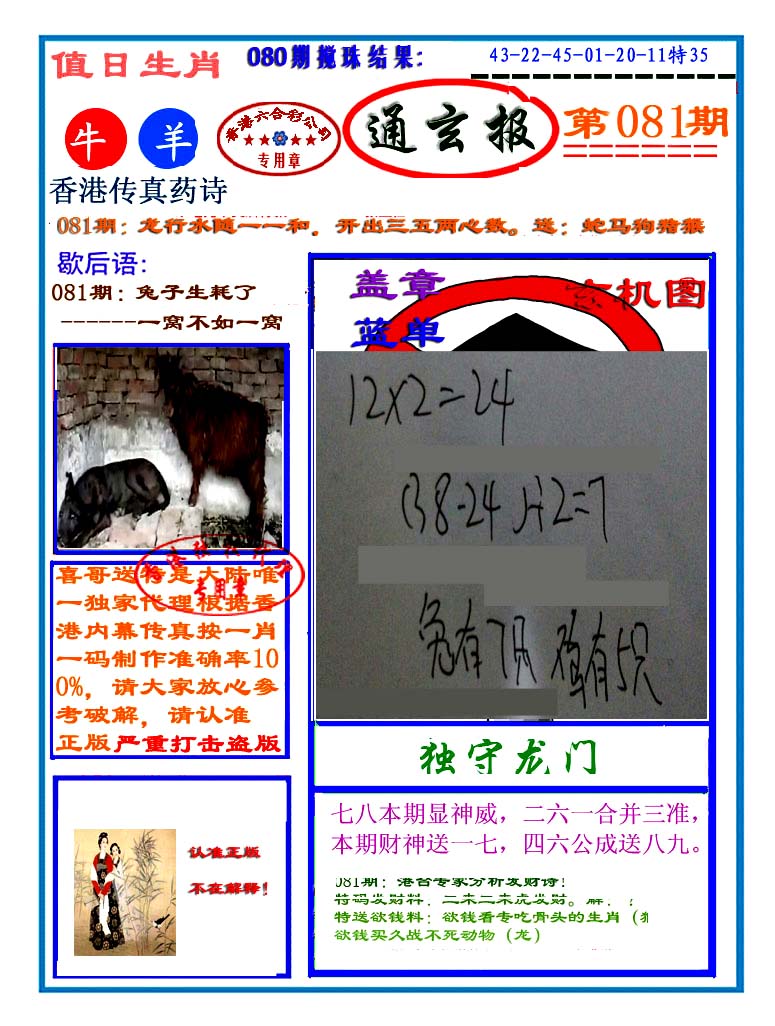 值日生肖
080期搅珠结果:
43-22-45-01-20-11特35
牛
羊
香港六合彩公司
专用章
通玄报
第081期
香港传真药诗
081期：龙行水随一一和，开出三五两心数。送：蛇马狗猪猴
歇后语:
081期：兔子生耗了
------一窝不如一窝
盖章
蓝单
玄机图
12×2=24
(38-24)÷2=7
兔有7只 鸡有5只
喜哥送特是大陆唯
一独家代理根据香
港内幕传真按一肖
一码制作准确率10
0%，请大家放心参
考破解，请认准
正版严重打击盗版
专用章
独守龙门
七八本期显神威，二六一合并三准，
本期财神送一七，四六公成送八九。
认准正版
不在解释！
081期：港台专家分析发财诗！
特码发财料：二来二来虎发财。解：？
特送欲钱料：欲钱看专吃骨头的生肖（
欲钱买久战不死动物（龙）